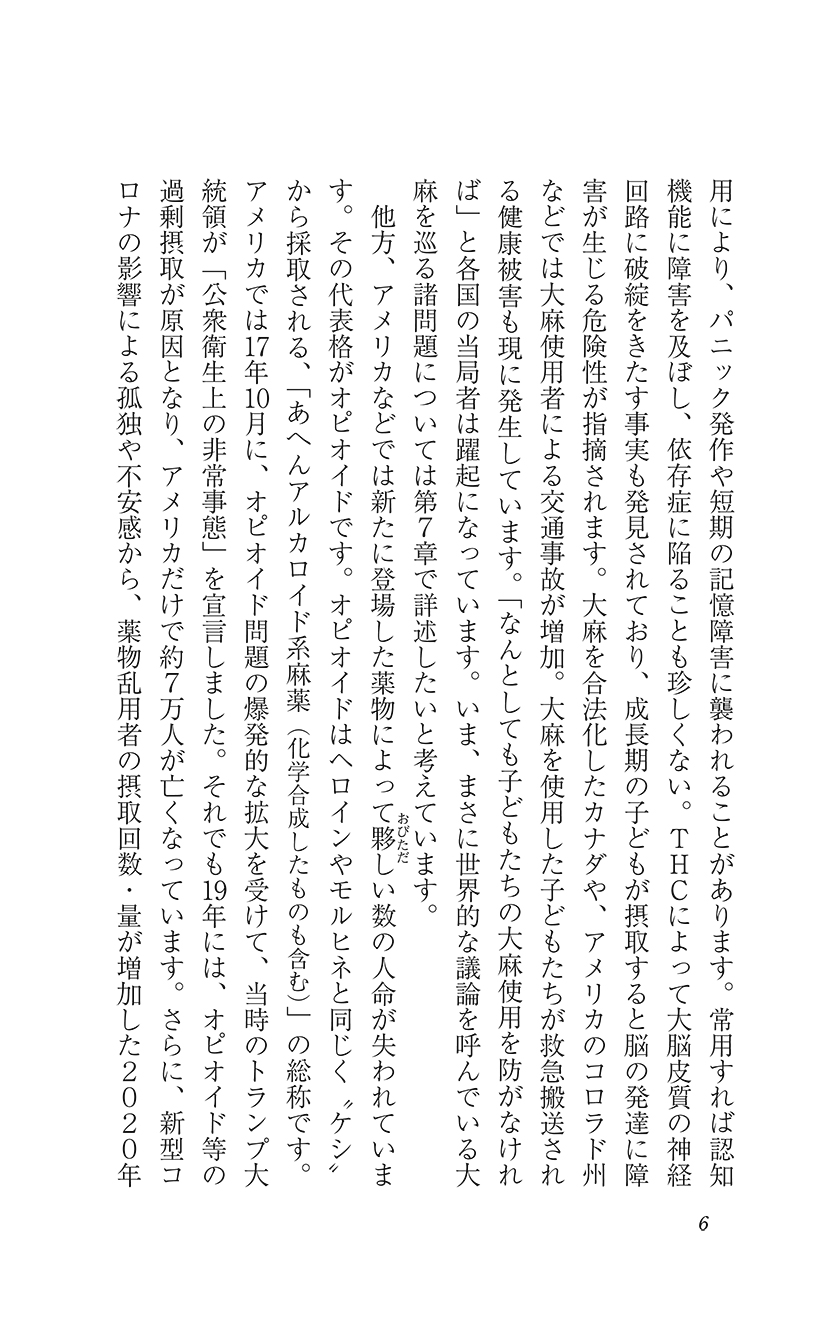 用により、パニック発作や短期の記憶障害に襲われることがあります。常用すれば認知
機能に障害を及ぼし、依存症に陥ることも珍しくない。ＴＨＣによって大脳皮質の神経
回路に破綻をきたす事実も発見されており、成長期の子どもが摂取すると脳の発達に障
害が生じる危険性が指摘されます。大麻を合法化したカナダや、アメリカのコロラド州
などでは大麻使用者による交通事故が増加。大麻を使用した子どもたちが救急搬送され
る健康被害も現に発生しています。「なんとしても子どもたちの大麻使用を防がなけれ
ば」と各国の当局者は躍起になっています。いま、まさに世界的な議論を呼んでいる大
麻を巡る諸問題については第７章で詳述したいと考えています。
他方、アメリカなどでは新たに登場した薬物によって夥しい数の人命が失われていま
おびただ
す。その代表格がオピオイドです。オピオイドはヘロインやモルヒネと同じく〝ケシ〟
から採取される、「あへんアルカロイド系麻薬（化学合成したものも含む）」の総称です。
アメリカでは17年10月に、オピオイド問題の爆発的な拡大を受けて、当時のトランプ大
統領が「公衆衛生上の非常事態」を宣言しました。それでも19年には、オピオイド等の
過剰摂取が原因となり、アメリカだけで約７万人が亡くなっています。さらに、新型コ
ロナの影響による孤独や不安感から、薬物乱用者の摂取回数・量が増加した２０２０年
6